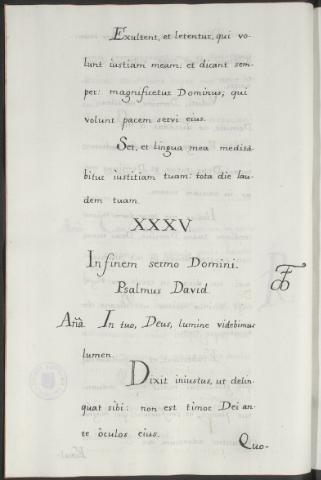 Exultent, et letentur, qui vo-
lunt iustiam meam: et dicant sem-
per: magnificetur Dominus, qui
volunt pacem servi eius.
Set, et lingua mea meditâ-
bitur iustitiam tuam: tota die lau-
dem tuam.
XXXV
In finem sermo Domini.
Psalmus David.
Aña In tuo, Deus, lumine vidébimus
lumen.
Dixit iniustus, ut delin-
quat sibi: non est timor Dei an-
te óculos eius.
Quo-